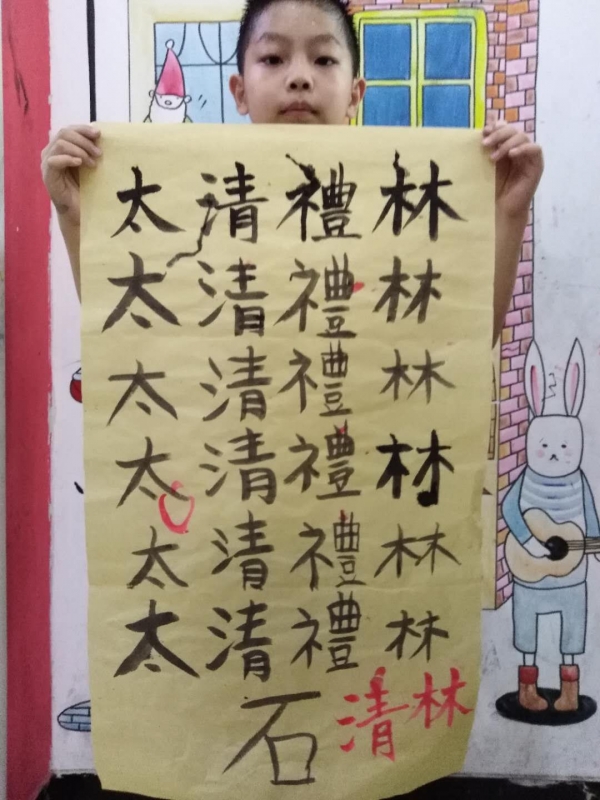 太清禮林
太清禮林
太清禮林
太清禮林
太清禮林
太清禮林
石清林